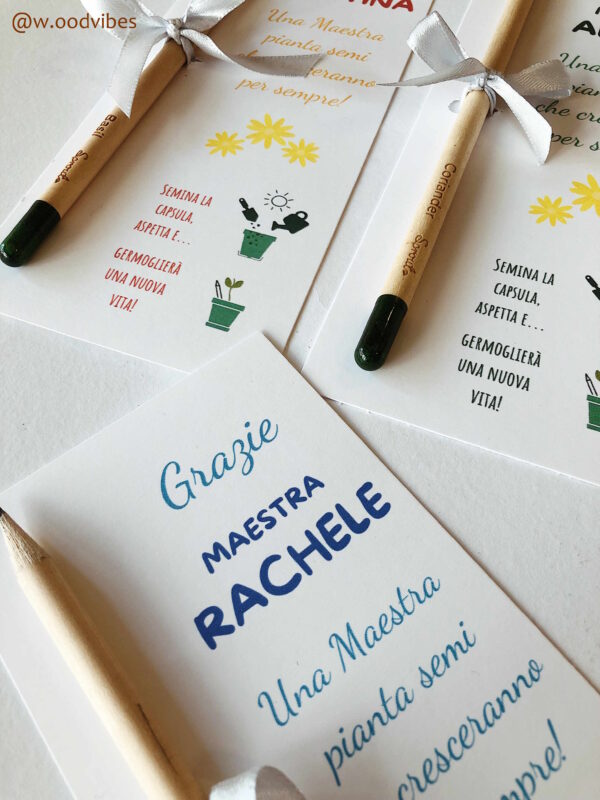 @w.oodvibes
Una Maestra
pianta semi
per sempre!
Basil Sprout
SEMINA LA
CAPSULA,
ASPETTA E...
GERMOGLIERÀ
UNA NUOVA
VITA!
Una
che cre
per s
Coriander Sprout
SEMINA LA
CAPSULA,
ASPETTA E...
GERMOGLIERÀ
UNA NUOVA
VITA!
Grazie
MAESTRA
RACHELE
Una Maestra
pianta semi
cresceranno
sempre!